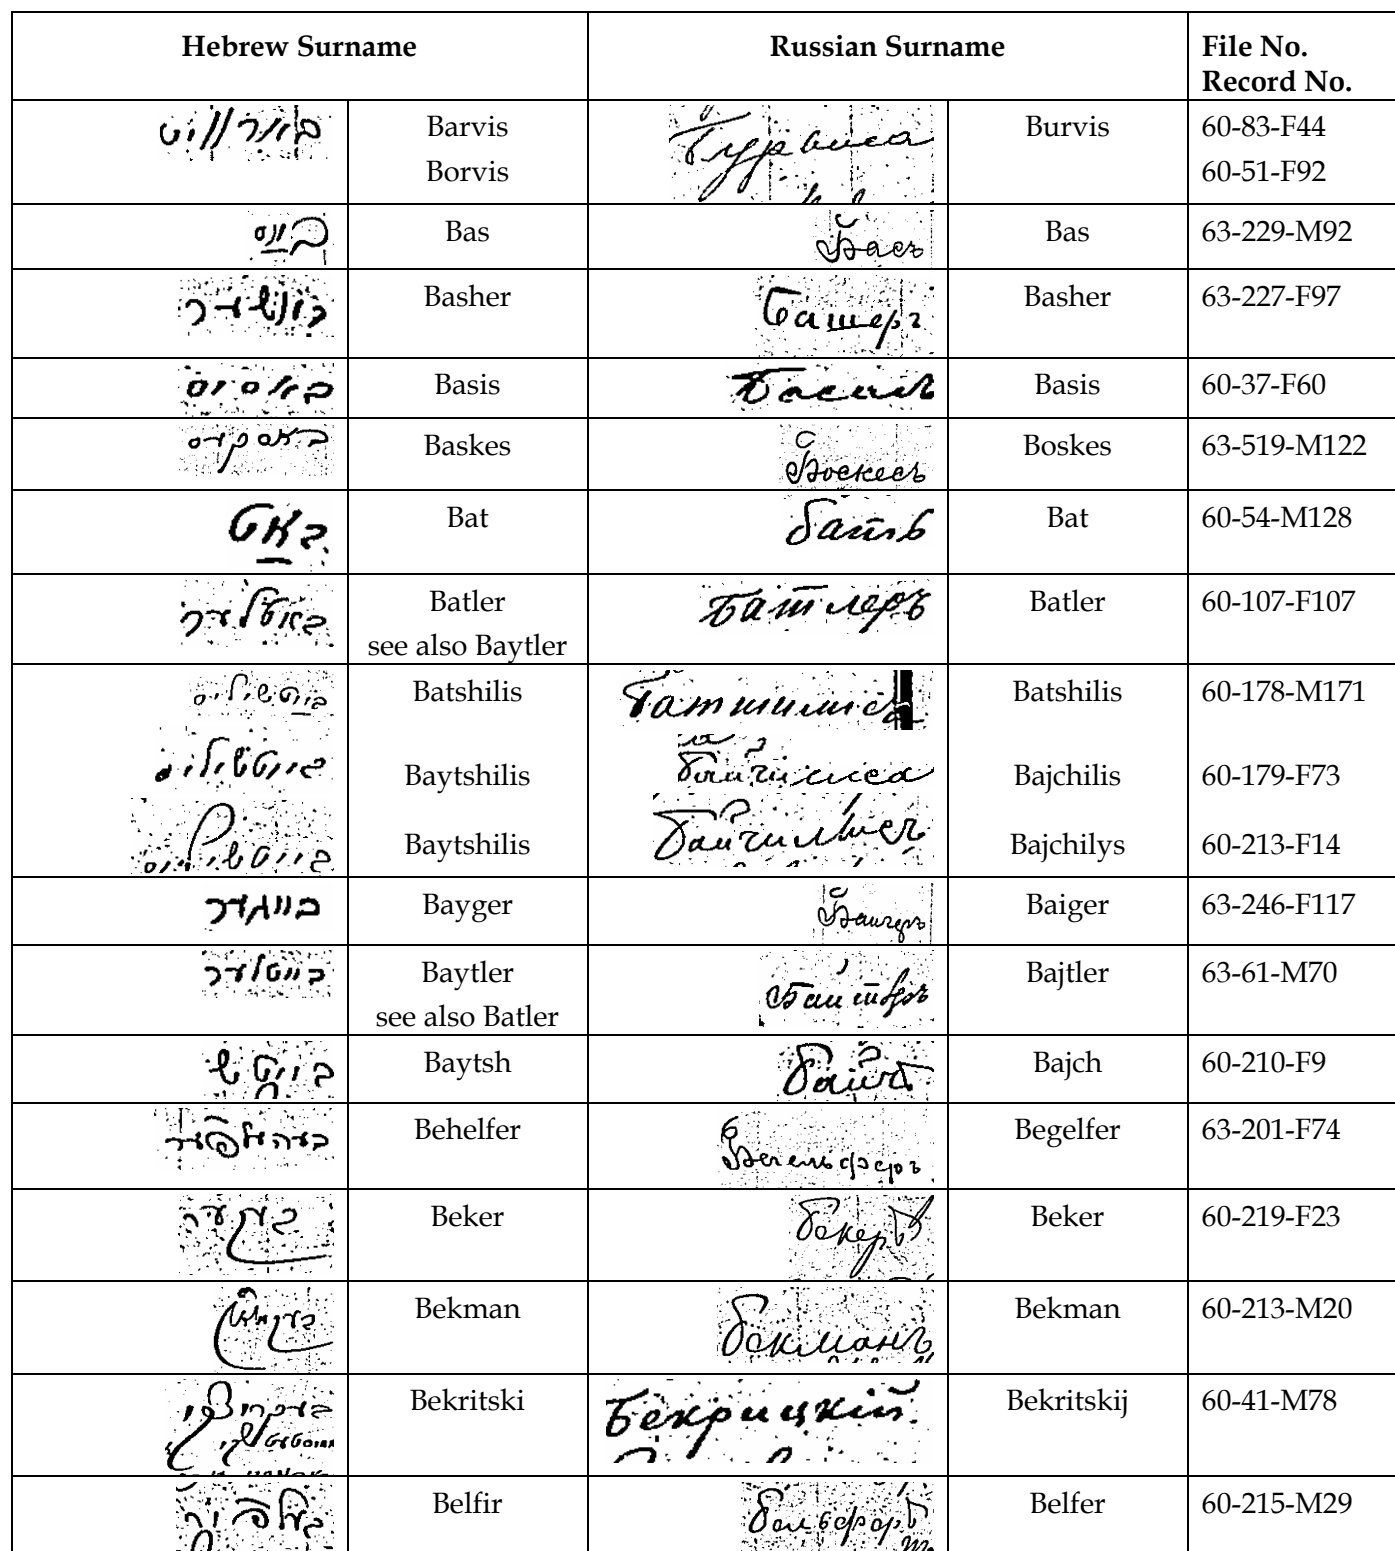 Hebrew Surname Russian Surname File No.
Record No.
בארוויס Barvis Бурвиса Burvis 60-83-F44
Borvis 60-51-F92
Bas Басъ Bas 63-229-M92
באשער Basher Башеръ Basher 63-227-F97
באסיס Basis Басисъ Basis 60-37-F60
באסקעס Baskes Боскесъ Boskes 63-519-M122
באט Bat Батъ Bat 60-54-M128
באטלער Batler Батлеръ Batler 60-107-F107
see also Baytler
Batshilis Batshilis 60-178-M171
בייטשיליס Baytshilis Байчилиса Bajchilis 60-179-F73
בייטשיליס Baytshilis Bajchilys 60-213-F14
בייגער Bayger Байгеръ Baiger 63-246-F117
בייטלער Baytler Байтлеръ Bajtler 63-61-M70
see also Batler
בייטש Baytsh Байчъ Bajch 60-210-F9
בעהעלפער Behelfer Бегельферъ Begelfer 63-201-F74
בעקער Beker Бекеръ Beker 60-219-F23
בעקמאן Bekman Бекманъ Bekman 60-213-M20
בעקריצקי Bekritski Бекрицкій Bekritskij 60-41-M78
בעלפיר Belfir Бельферъ Belfer 60-215-M29